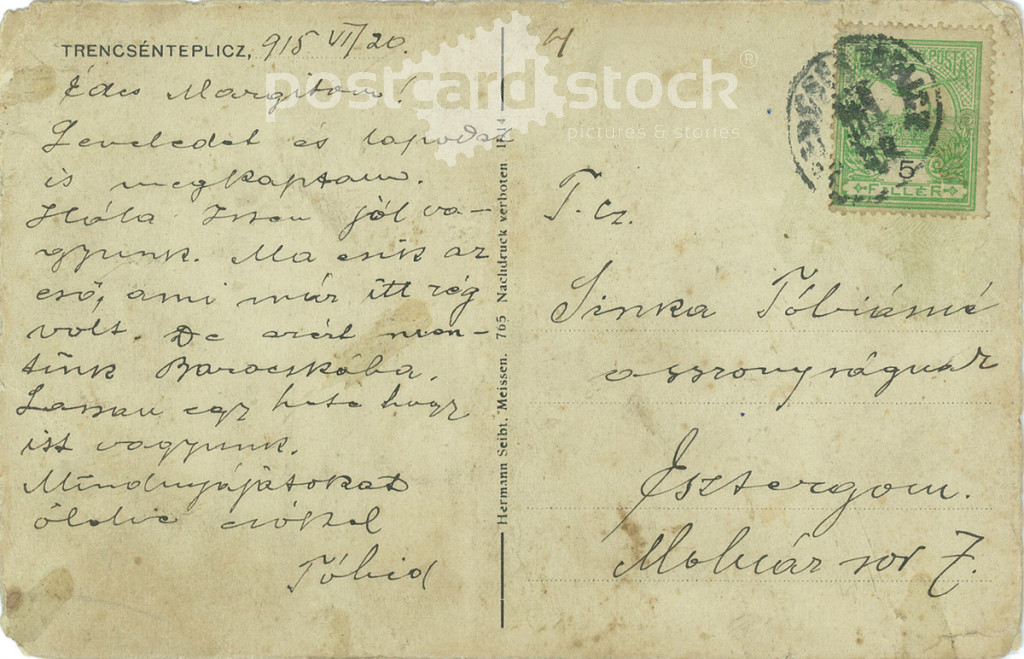 TRENCSÉNTEPLICZ, 915 VI/20.
Édes Margitom!
Leveledet és lapodat
is megkaptam.
Hála Isten jól va-
gyunk. Ma esik az
eső, ami már itt rég
volt. De azért men-
tünk Barocskába.
Lassan egy hete hogy
itt vagyunk.
Mindnyájatokat
ölelve csókol
Tóbid
Hermann Seibt, Meissen. 765 Nachdruck verboten
postcard stock®
pictures & stories
POSTA
5
FILLÉR
T. cz.
Sinka Tóbiásné
asszonyságnak
Esztergom.
Molnár sor 7.